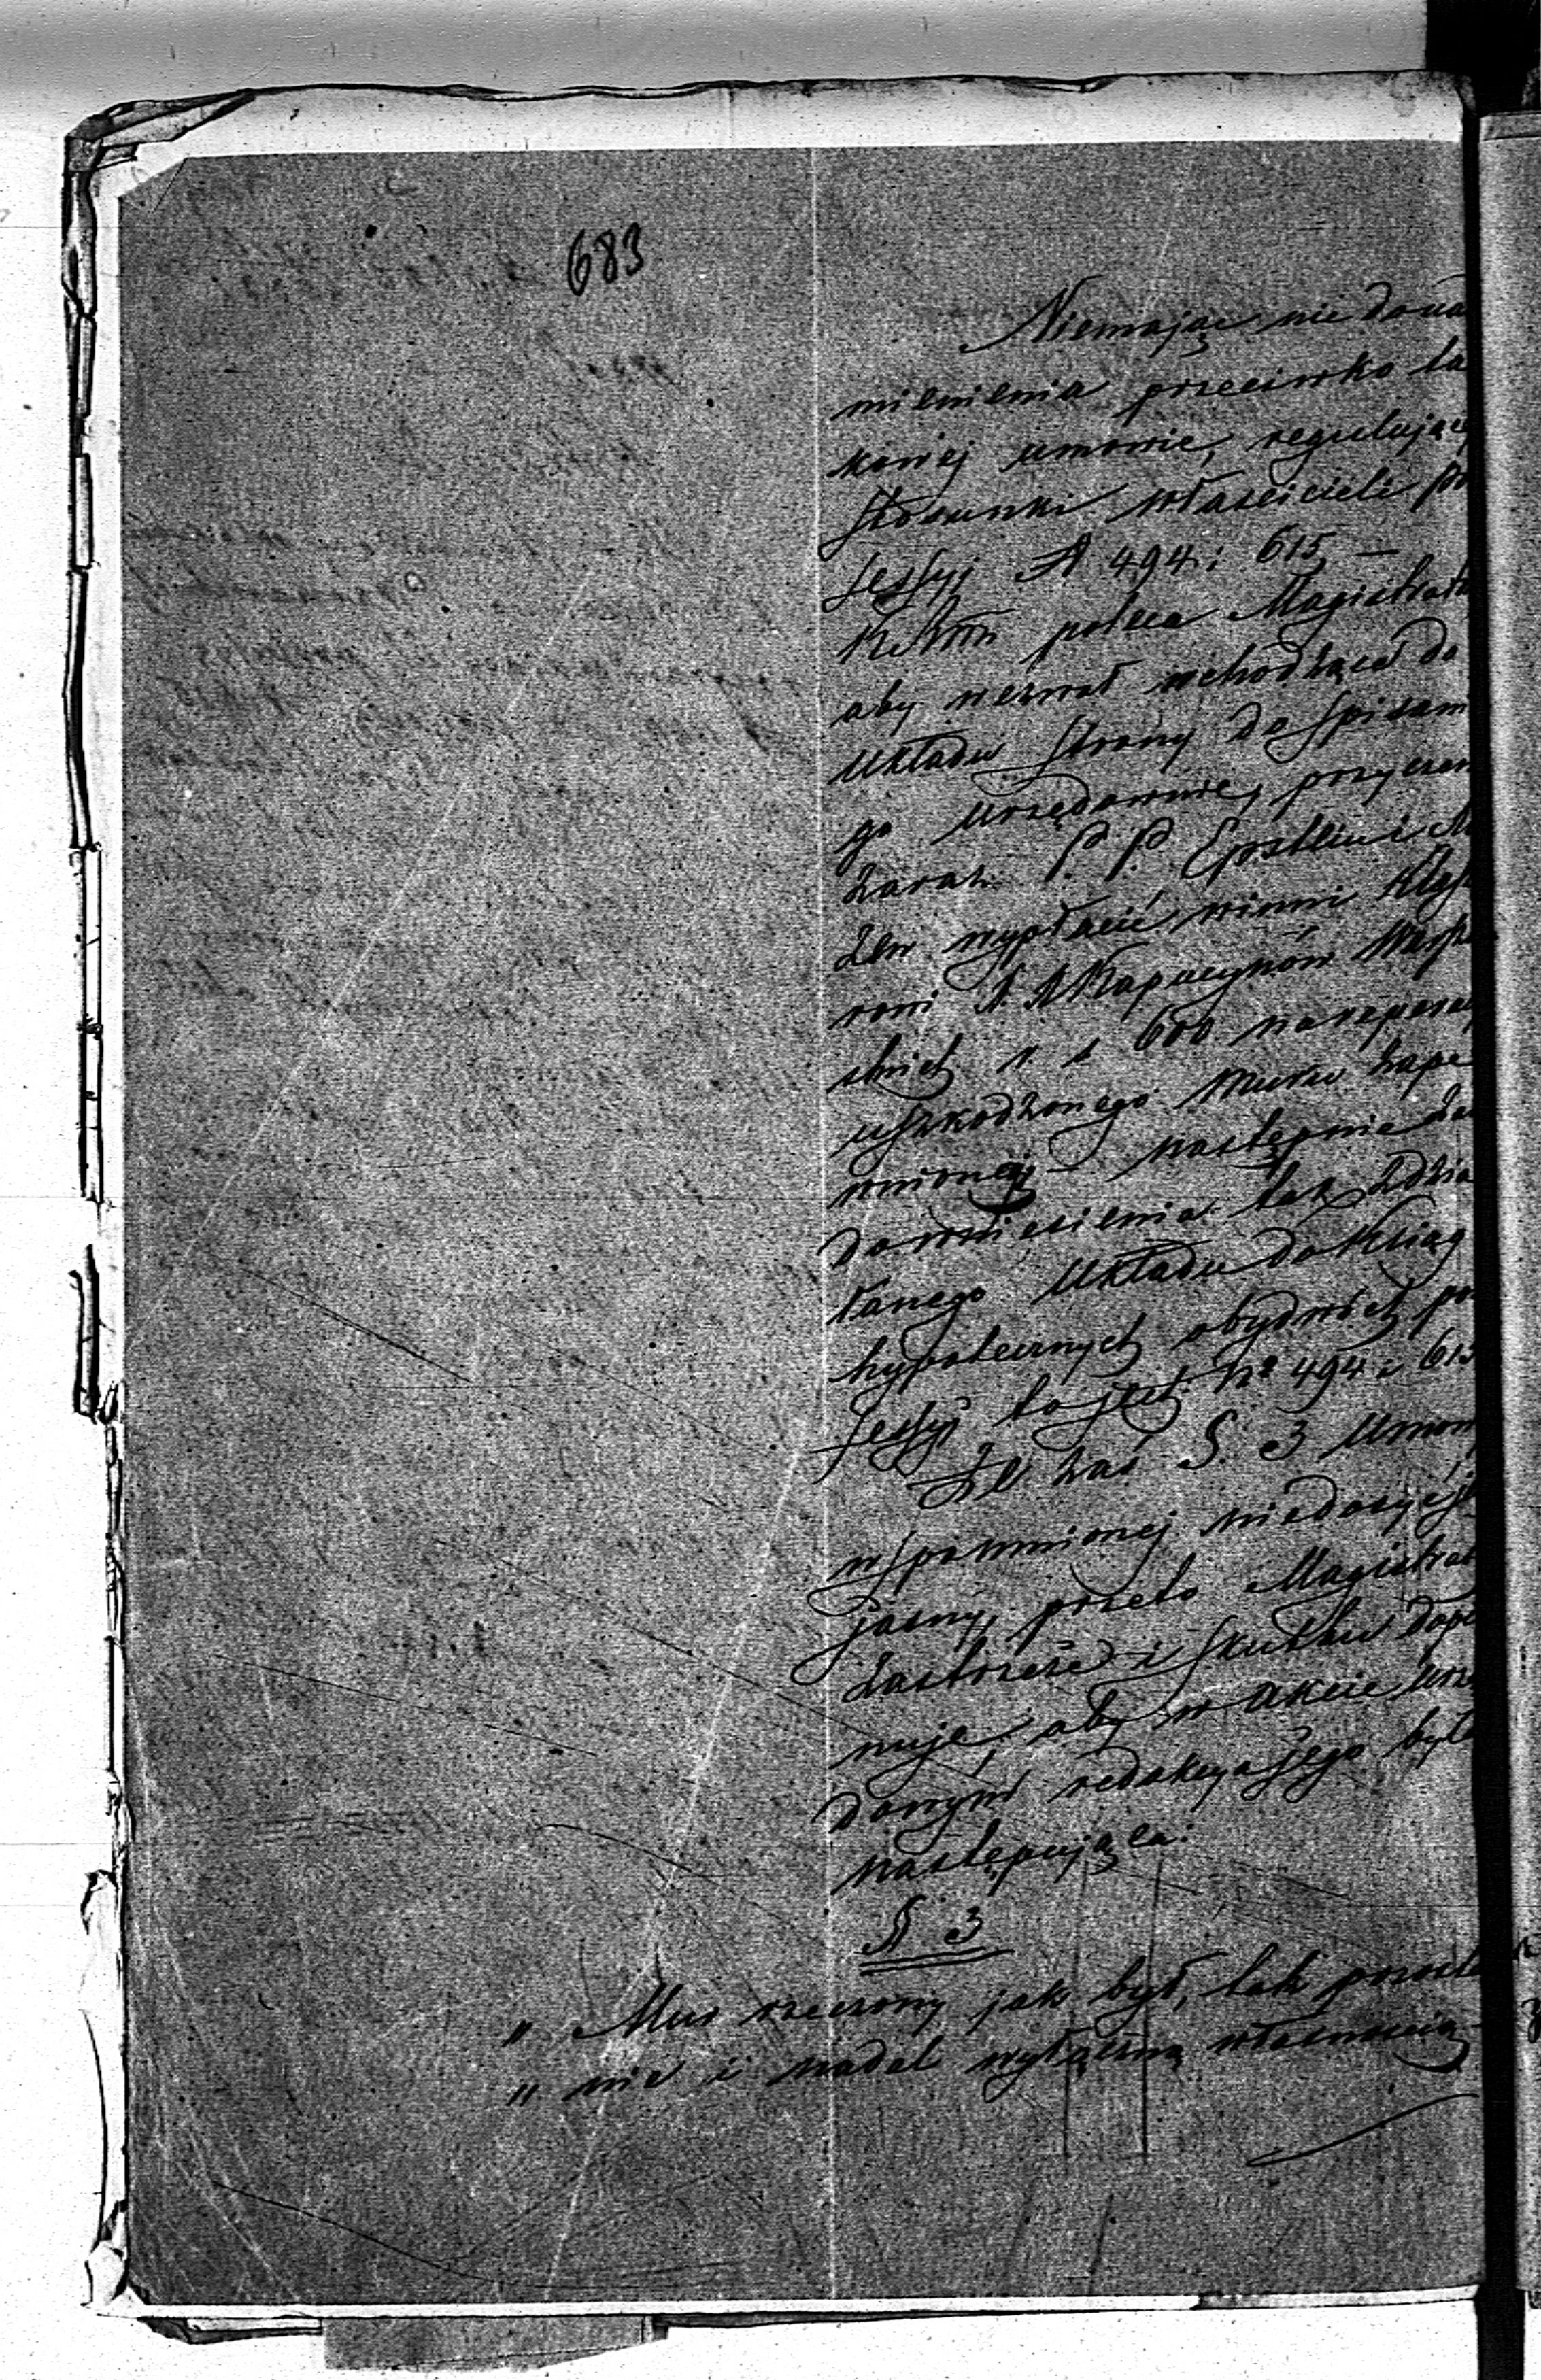 683
Niemając nic do na
mienienia przeciwko ta
kowej umowie, regulującej
stosunki właścicieli po
sessyj N 494 i 615 —
poleca Magistrat
aby wezwał wchodzące do
układu strony do spisani
go urzędownie, przyczem
zaraz P. P. Epstein i
wypłacić winni
X.X Kapucynów Warsza
skich r. s 600 na reperacy
uszkodzonego muru
następnie
do wniesienia tak zdzia
łanego układu do Ksiąg
hypotecznych obydwóch po
sessyj to jest No 494 i 615
Że zaś §. 3 umowy
wspomnionej niedosyć jest
jasny, przeto Magistrat
zastrzeże i skutku dopil
nuje, aby w akcie urzę
downym redakcya jego była
następująca:
§ 3
" Mur rzeczony jak był, tak pozosta
" nie i nadal wyłączną własnością